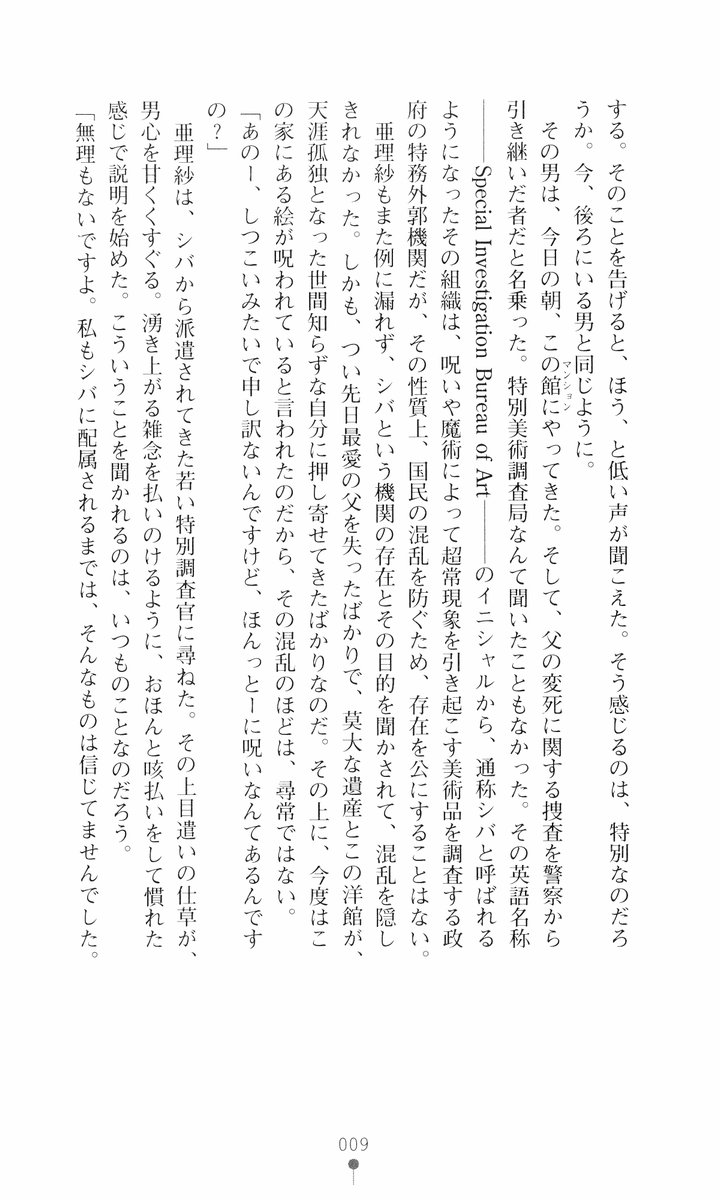 する。そのことを告げると、ほう、と低い声が聞こえた。そう感じるのは、特別なのだろ
うか。今、後ろにいる男と同じように。
その男は、今日の朝、この館にやってきた。そして、父の変死に関する捜査を警察から
マンション
引き継いだ者だと名乗った。特別美術調査局なんて聞いたこともなかった。その英語名称
――Special Investigation Bureau of Art――のイニシャルから、通称シバと呼ばれる
ようになったその組織は、呪いや魔術によって超常現象を引き起こす美術品を調査する政
府の特務外郭機関だが、その性質上、国民の混乱を防ぐため、存在を公にすることはない。
亜理紗もまた例に漏れず、シバという機関の存在とその目的を聞かされて、混乱を隠し
きれなかった。しかも、つい先日最愛の父を失ったばかりで、莫大な遺産とこの洋館が、
天涯孤独となった世間知らずな自分に押し寄せてきたばかりなのだ。その上に、今度はこ
の家にある絵が呪われていると言われたのだから、その混乱のほどは、尋常ではない。
「あのー、しつこいみたいで申し訳ないんですけど、ほんっとーに呪いなんてあるんです
の？」
亜理紗は、シバから派遣されてきた若い特別調査官に尋ねた。その上目遣いの仕草が、
男心を甘くくすぐる。湧き上がる雑念を払いのけるように、おほんと咳払いをして慣れた
感じで説明を始めた。こういうことを聞かれるのは、いつものことなのだろう。
「無理もないですよ。私もシバに配属されるまでは、そんなものは信じてませんでした。
009